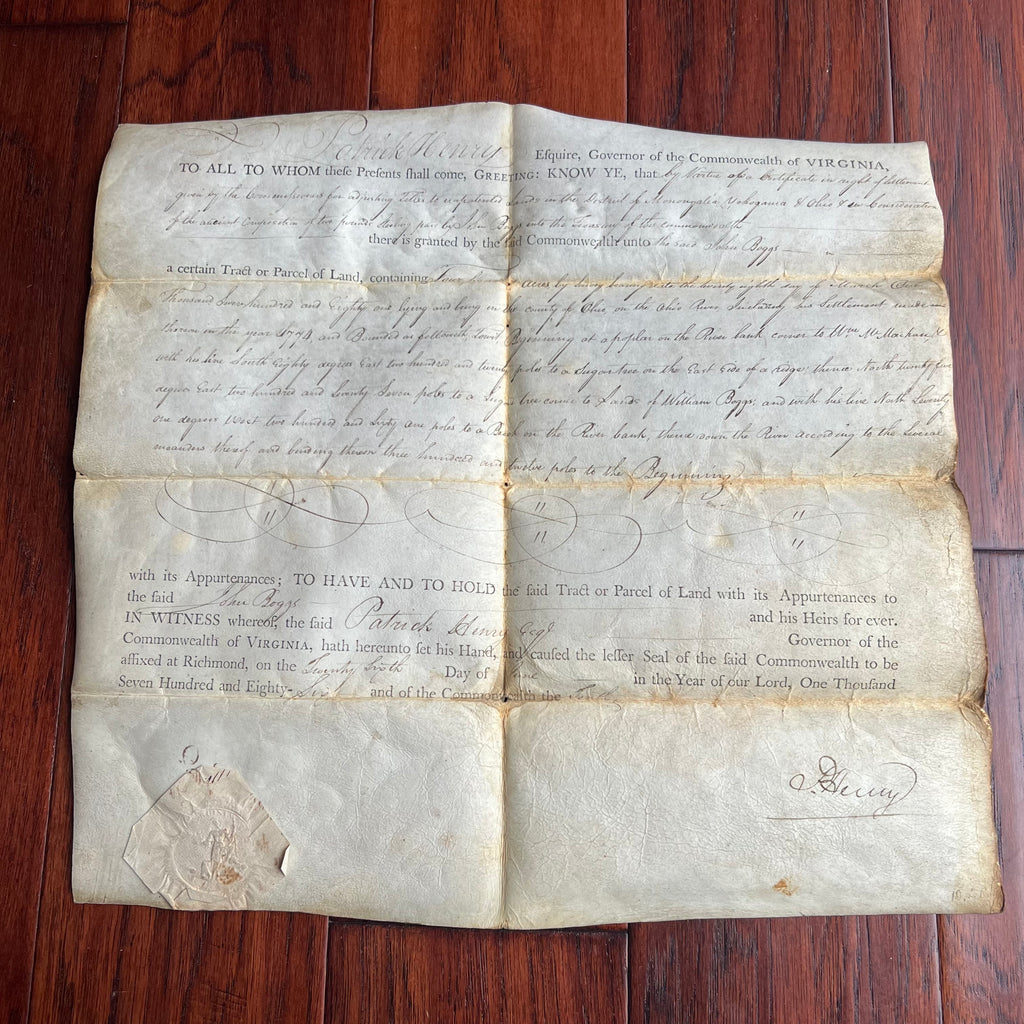 Patrick Henry Esquire, Governor of the Commonwealth of VIRGINIA,
TO ALL TO WHOM theſe Preſents ſhall come, GREETING: KNOW YE, that by Virtue of a Certificate in right of Settlement
given by the Commissioners for adjusting Titles to unpatented Lands in the District of Monongalia Yohogania & Ohio & in Consideration
of the ancient Composition of two pounds Sterling paid by John Boggs into the Treasury of this Commonwealth
there is granted by the ſaid Commonwealth unto the said John Boggs
a certain Tract or Parcel of Land, containing Four hundred Acres by Survey bearing date the twenty eighth day of March One
Thousand Seven hundred and Eighty one lying and being in the County of Ohio, on the Ohio River, Including his Settlement made
thereon in the year 1774 and Bounded as followeth, Towit Beginning at a poplar on the River bank corner to Wm. McMachan &
with his line South Eighty degrees East two hundred and twenty poles to a Sugar tree on the East Side of a ridge; thence North twenty five
degrees East two hundred and Seventy Seven poles to a Sugar tree corner to Lands of William Boggs, and with his line North Seventy
one degrees West two hundred and Sixty one poles to a on the River bank, thence down the River according to the Several
meanders thereof and binding thereon three hundred and twelve poles to the Beginning
with its Appurtenances; TO HAVE AND TO HOLD the ſaid Tract or Parcel of Land with its Appurtenances to
the ſaid John Boggs and his Heirs for ever.
IN WITNESS whereof, the ſaid Patrick Henry Esqr. Governor of the
Commonwealth of VIRGINIA, hath hereunto ſet his Hand, and cauſed the leſſer Seal of the ſaid Commonwealth to be
affixed at Richmond, on the Twenty Sixth Day of June in the Year of our Lord, One Thouſand
Seven Hundred and Eighty-Six and of the Commonwealth the
P. Henry